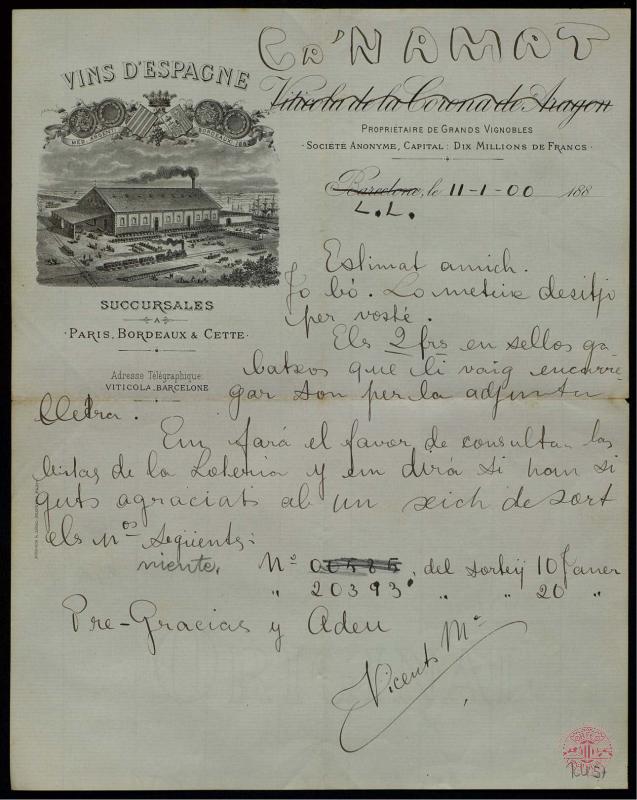 Ca'NAMAT
VINS D'ESPAGNE
MED. ARGENT
BORDEAUX 188
Viticola de la Corona de Aragon
PROPRIÉTAIRE DE GRANDS VIGNOBLES
SOCIÉTÉ ANONYME, CAPITAL: DIX MILLIONS DE FRANCS
Barcelone, le 11-1-00 188
L.L.
SUCCURSALES
A
PARIS, BORDEAUX & CETTE
Adresse Télégraphique:
VITICOLA, BARCELONE
Estimat amich.
Jo bó. Lo meteix desitjo
per vosté.
Els 2 frs en sellos ga-
batxos que li vaig encarre-
gar son per la adjunta
lletra.
Em fará el favor de consulta las
listas de la Loteria y em dirá si hem si
guts agraciats ab un xich de sort
els nos següents:
niente. No 00585, del sorteij 10 Janer
" 20393 " " 20 "
Pre-Gracias y Adeu
Vicents Ma